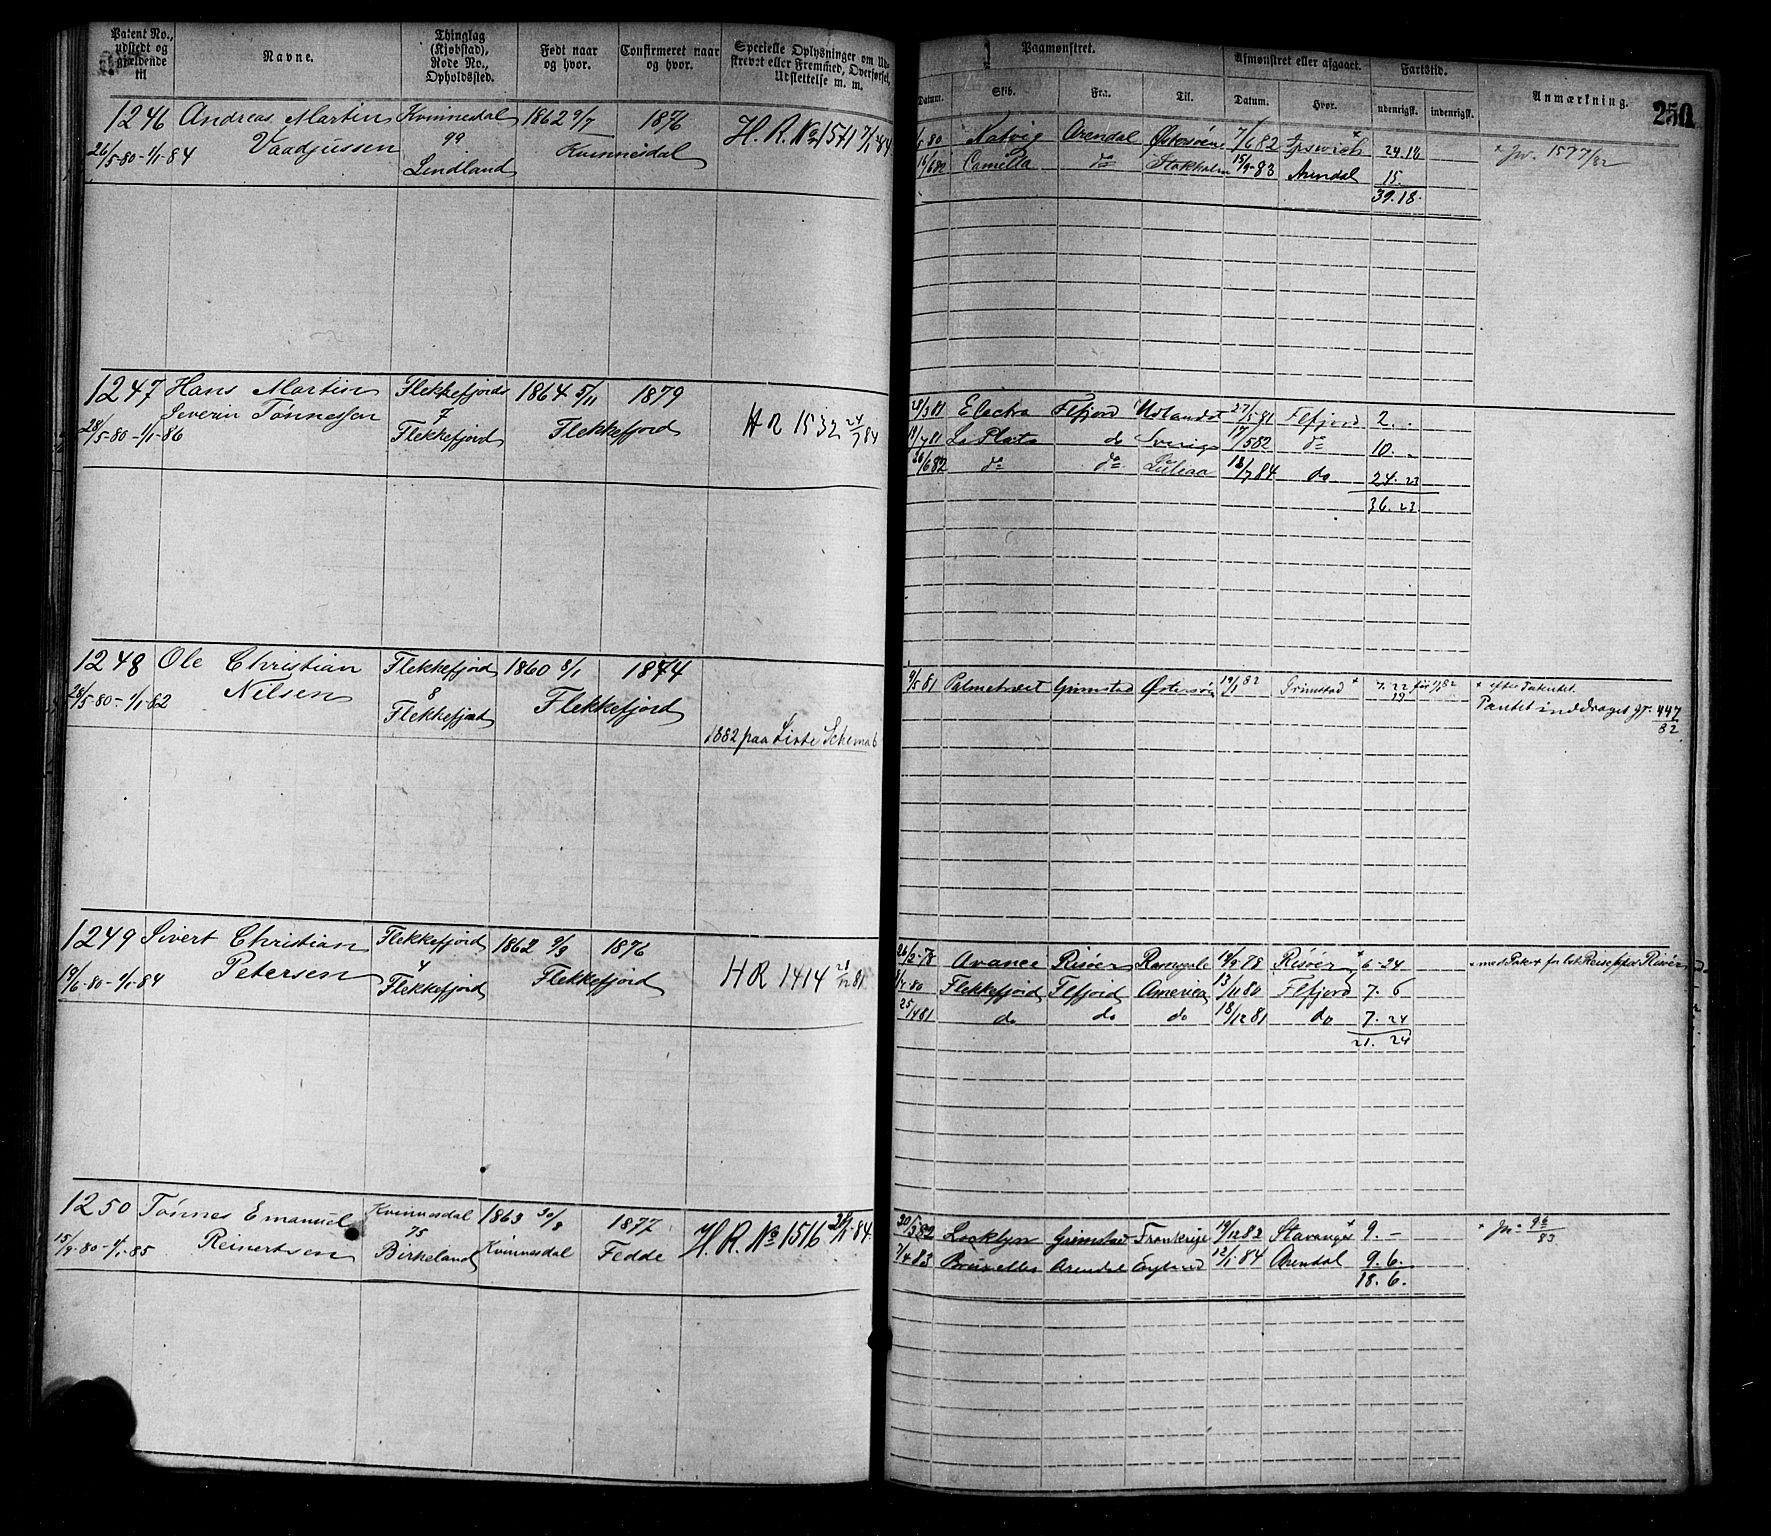 Patent No., udstedt og gjældende til
Navne.
Thinglag (Kjøbstad), Rode No., Opholdssted.
Født naar og hvor.
Confirmeret naar og hvor.
Specielle Oplysninger om Udskrevet eller Fremstød, Overførsel, Udslettelse m. m.
Paamønstret.
Afmønstret eller afgaaet.
Fartstid.
Anmærkning.
250
Datum. Skib. Fra. Til. Datum. Hvor. udenrigsk. indenrigsk.
1246 Andreas Martin Kvinnesdal 1862 9/7 1876 H. R. No 1541 7/1 84
26/5-80-1/1-84 Vaadjussen 99 Kvinnesdal
Lindland
5 80 Natvig Arendal Østersøen 7/6 82 Ipsevich + 24.18 + Jw. 1577/82
15/6 82 Camilla do Stokholm 15/9-83 Arendal 15.
39.18.
1247 Hans Martin Flekkefjords 1864 5/11 1879 H R 1532 24/7 84
28/5-80-1/1-86 Severin Tønnessen 7 Flekkefjord
Flekkefjord
28/3 81 Electra Flefjord Udlandet 27/5 81 Flefjord 2. .
19/7 81 La Plata do Sverige 17/5 82 do 10. -
26/6 82 do do Luleaa 18/7 84 do 24. 23
36. 23
1248 Ole Christian Flekkefjord 1860 8/1 1874
28/5-80-1/1-82 Nilsen 8 Flekkefjord
Flekkefjord
1882 paa Liste Schema 6
9/5 81 Palmetræet Grimstad Østersøen 19/1 82 Grimstad + 7. 22 før 1/1 82 + efter Patentet.
19 Pantet inddraget jr. 447/82
1249 Sivert Christian Flekkefjord 1862 9/9 1876
19/6-80-1/1-84 Petersen 4 Flekkefjord H R 1414 28/12 81
Flekkefjord
26/2-78 Avance Risøer 19/9 78 Risøer + 6-24
7 80 Flekkefjord Flefjord America 13/11 80 Flefjord 7. 6
25/4 81 do do do 18/12 81 do 7. 24
21. 24
1250 Tønnes Emanuel Kvinnesdal 1863 30/8 1877 H. R. No 1516 21/1-84.
15/9-80-1/1-85 Reinertsen 75 Kvinnesdal Fedde
Birkeland
30/5 82 Locklyn Grimstad Frankrige 19/12 82 Stavanger + 9. - + Jr: 96/83
7/4 83 Bruxelles Arendal England 12/1 84 Arendal 9. 6.
18. 6.